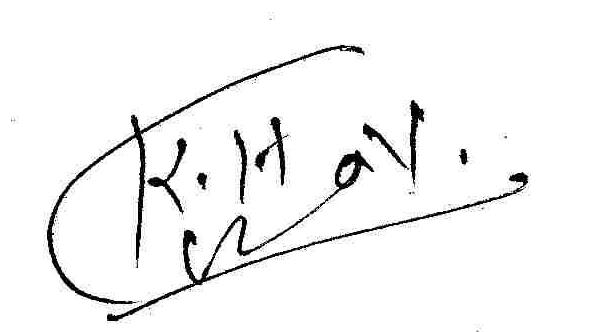 K. H av.